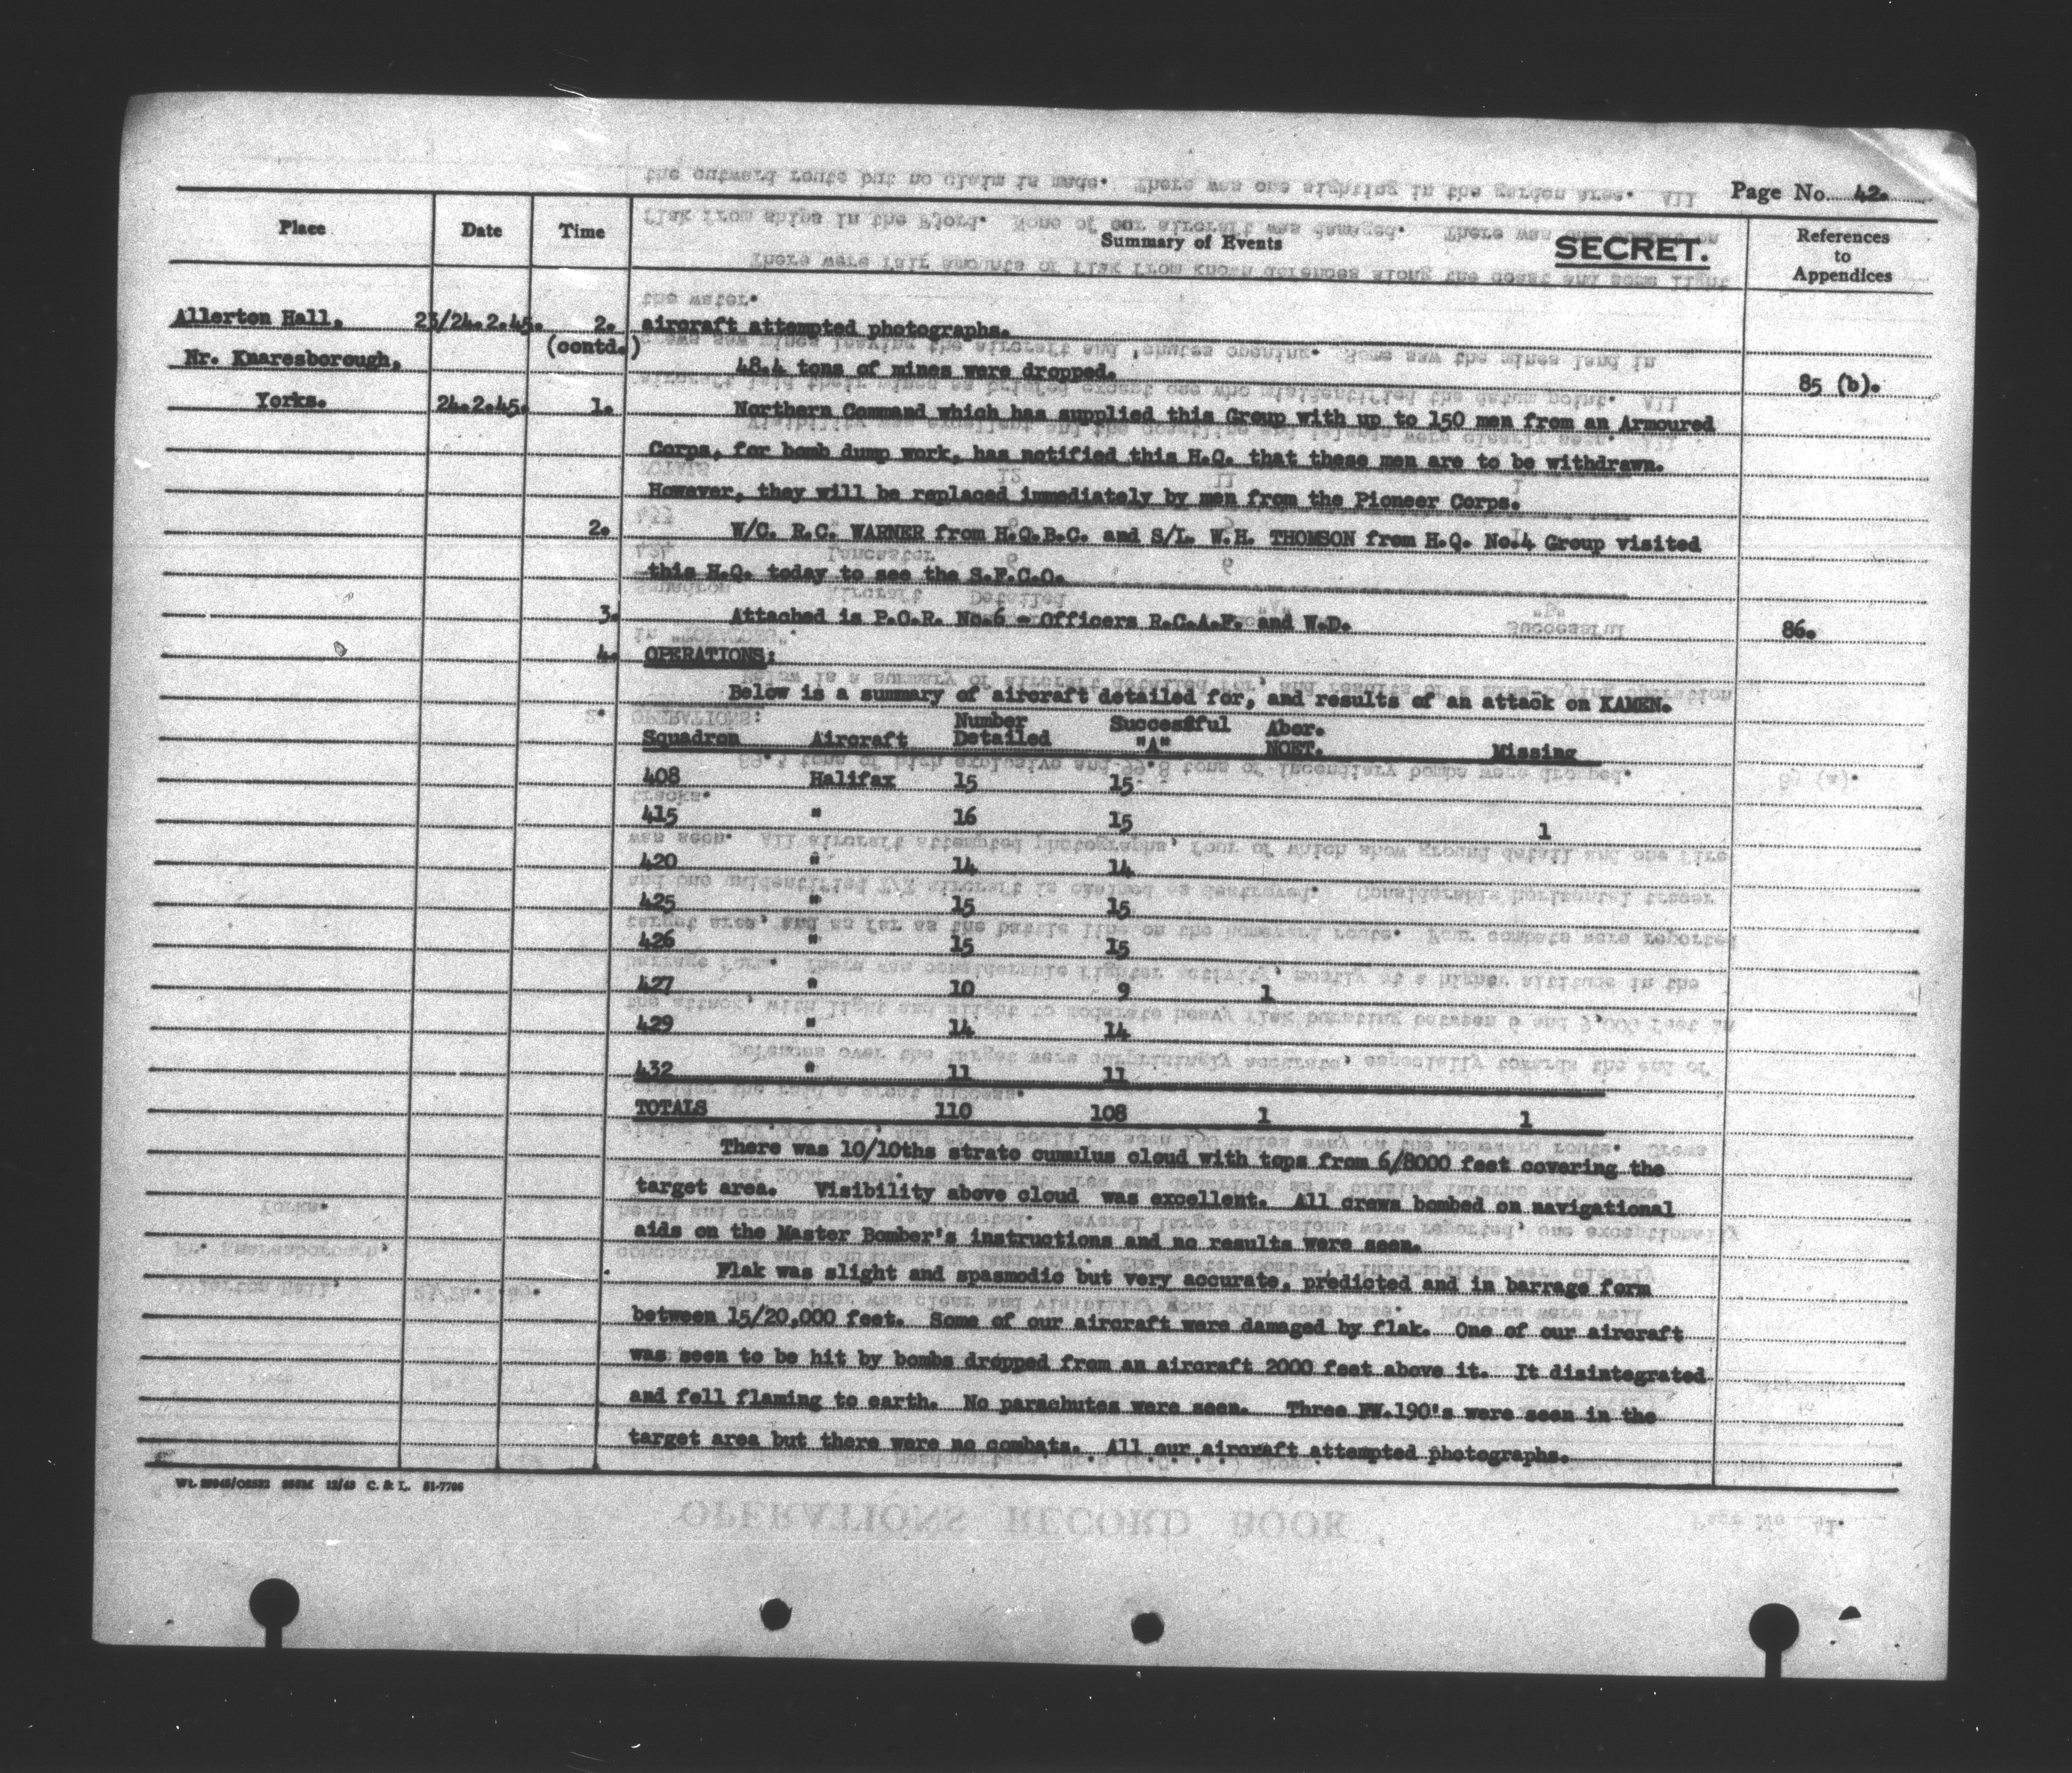 Page No. 42.
Place Date Time Summary of Events SECRET. References to Appendices
Allerton Hall, 23/24.2.45. 2. aircraft attempted photographs.
(contd.)
Nr. Knaresborough, 48.4 tons of mines were dropped. 85 (b).
Yorks. 24.2.45. 1. Northern Command which has supplied this Group with up to 150 men from an Armoured
Corps, for bomb dump work, has notified this H.Q. that these men are to be withdrawn.
However, they will be replaced immediately by men from the Pioneer Corps.
2. W/C. R.C. WARNER from H.Q.B.C. and S/L. W.H. THOMSON from H.Q. No.4 Group visited
this H.Q. today to see the S.F.C.O.
3. Attached is P.O.R. No.6 - Officers R.C.A.F. and W.D. 86.
4. OPERATIONS:
Below is a summary of aircraft detailed for, and results of an attack on KAMEN.
Squadron Aircraft Number Detailed Successful "A" Abor. NOET. Missing
408 Halifax 15 15
415 " 16 15 1
420 " 14 14
425 " 15 15
426 " 15 15
427 " 10 9 1
429 " 14 14
432 " 11 11
TOTALS 110 108 1 1
There was 10/10ths strato cumulus cloud with tops from 6/8000 feet covering the
target area. Visibility above cloud was excellent. All crews bombed on navigational
aids on the Master Bomber's instructions and no results were seen.
Flak was slight and spasmodic but very accurate, predicted and in barrage form
between 15/20,000 feet. Some of our aircraft were damaged by flak. One of our aircraft
was seen to be hit by bombs dropped from an aircraft 2000 feet above it. It disintegrated
and fell flaming to earth. No parachutes were seen. Three FW.190's were seen in the
target area but there were no combats. All our aircraft attempted photographs.
12/43 C. & L. 51-7706
OPERATIONS RECORD BOOK
Page No. 41.